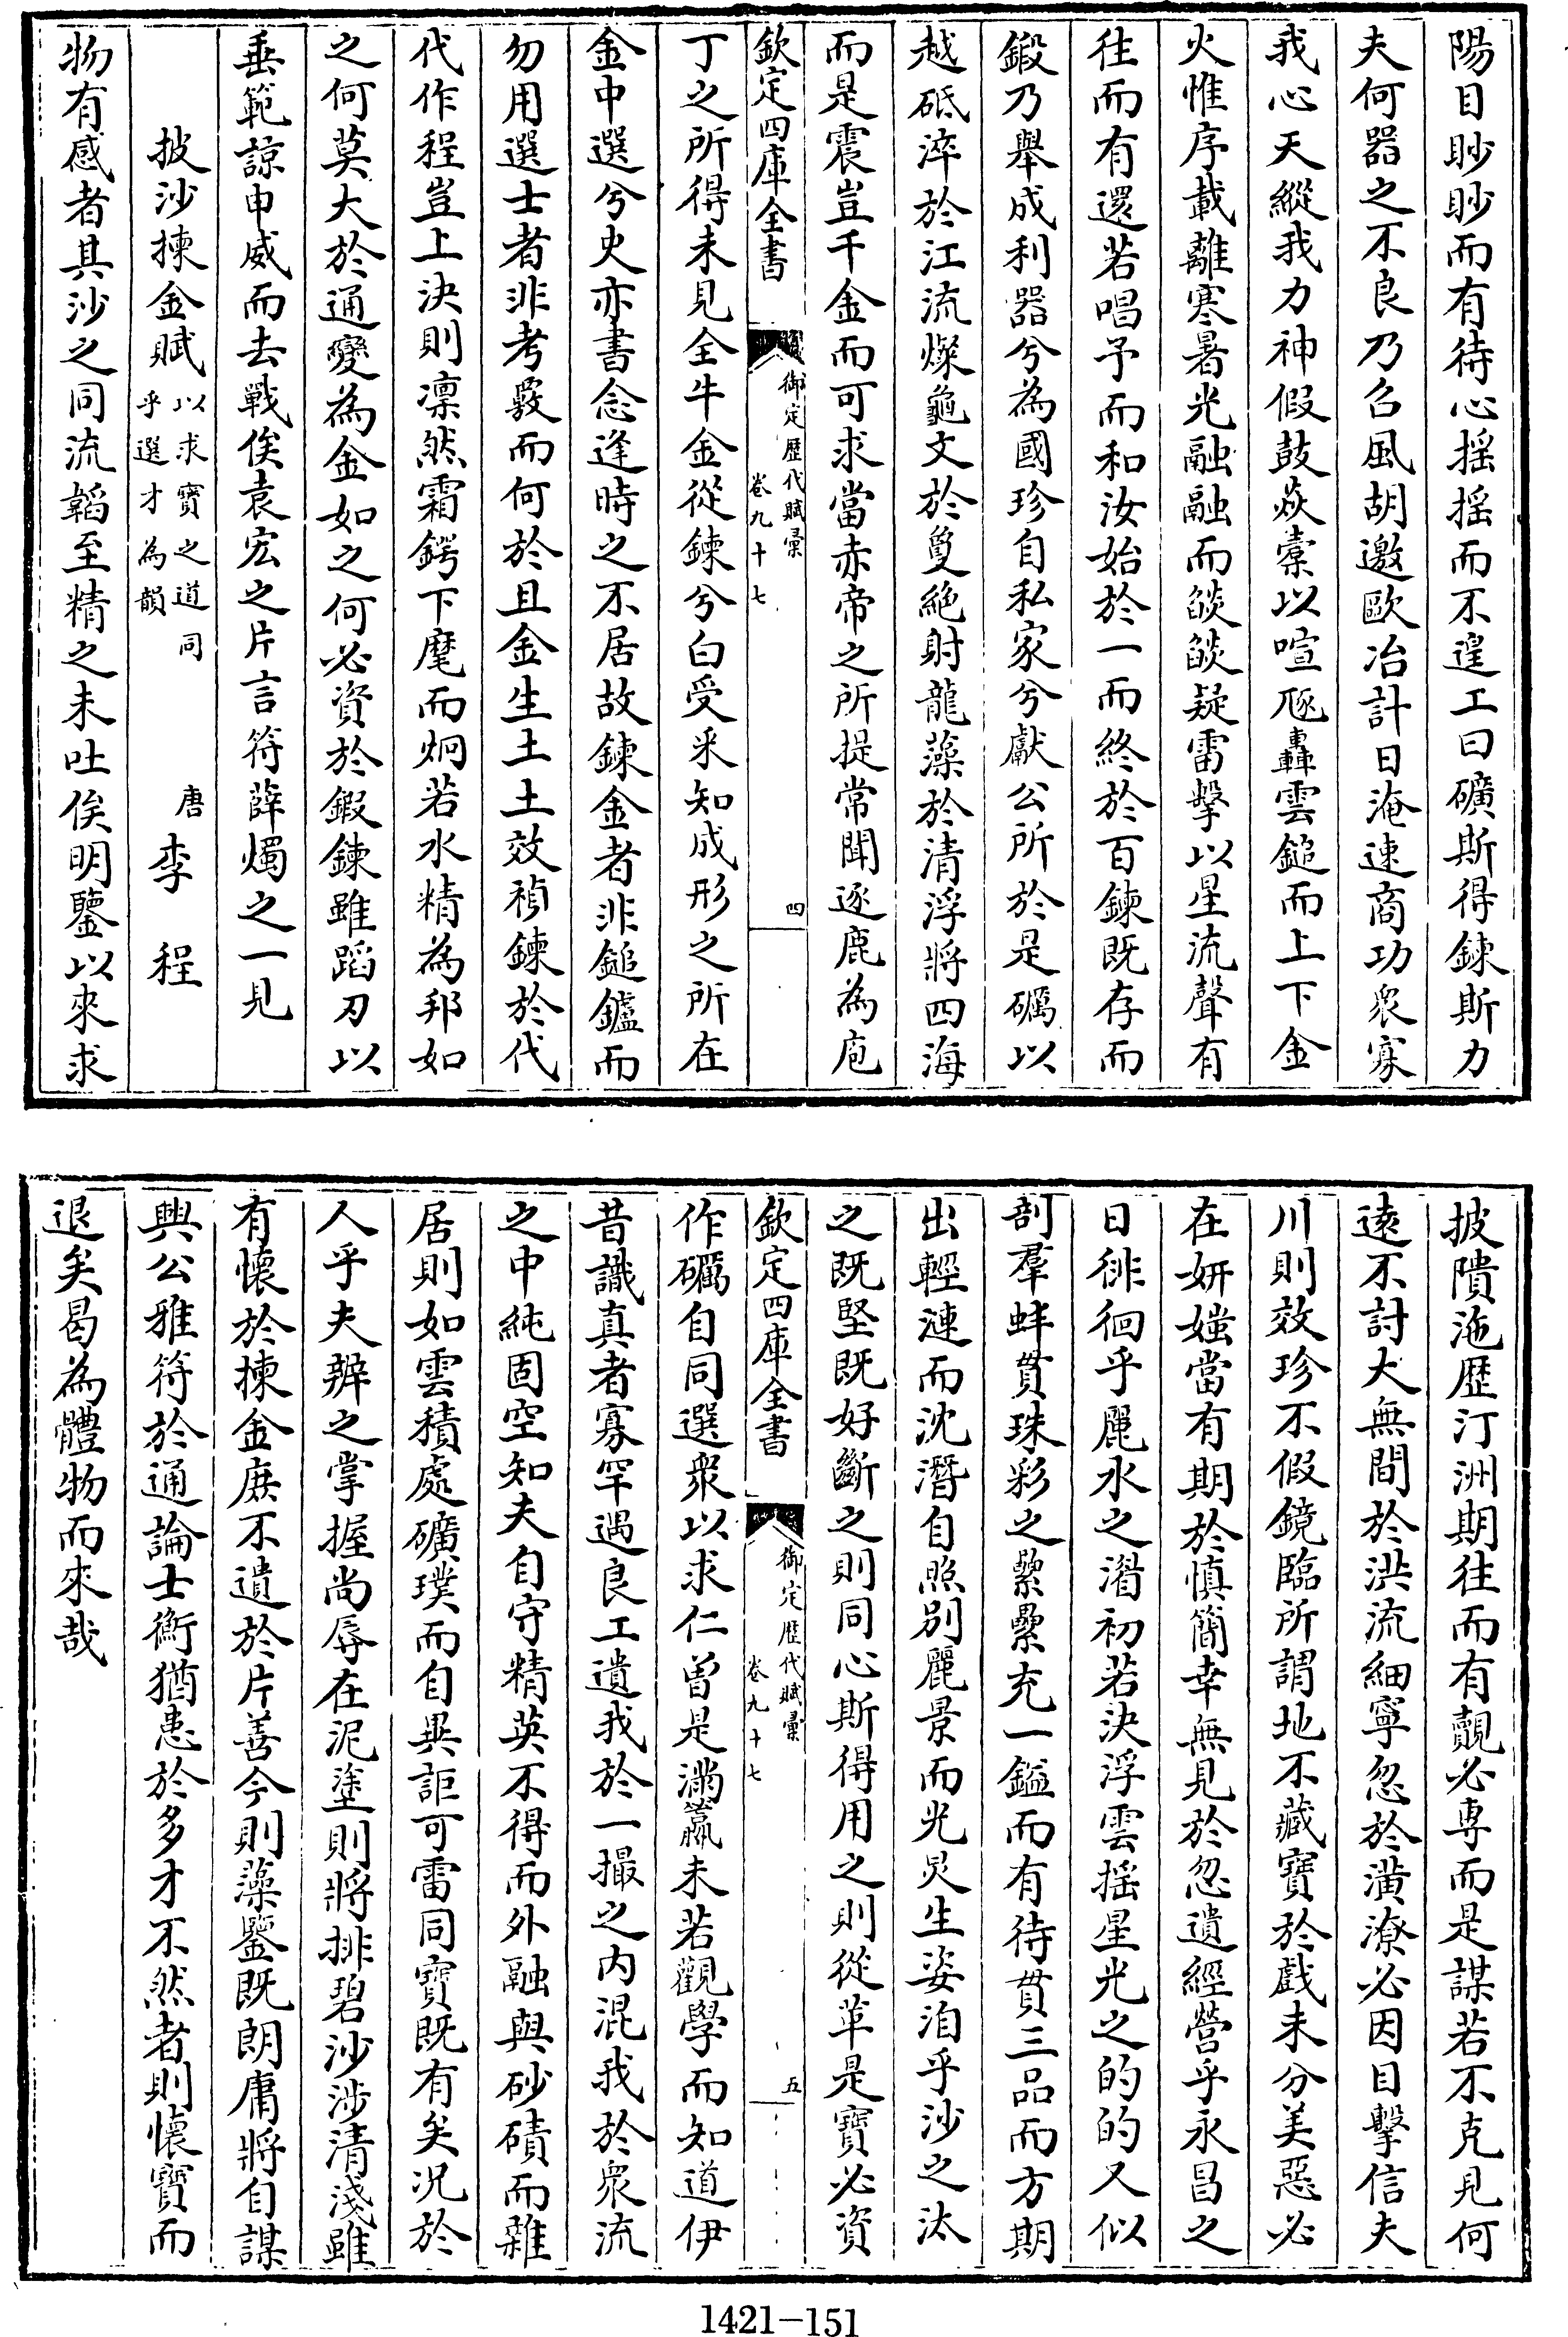 陽目眇眇而有待心摇摇而不遑工曰礦斯得鍊斯力
夫何器之不良乃召風胡邀歐冶計日淹速商功衆寡
我心天縱我力神假鼓焱橐以喧豗轟雲鎚而上下金
火惟序載離寒暑光融融而燄燄疑雷擊以星流聲有
往而有還若唱予而和汝始於一而終於百鍊既存而
鍛乃舉成利器兮為國珍自私家兮獻公所於是礪以
越砥淬於江流燦龜文於夐絶射龍藻於清浮將四海
而是震豈千金而可求當赤帝之所提常聞逐鹿為庖
欽定四庫全書
御定歷代賦彙
卷九十七
四
丁之所得未見全牛金從鍊兮白受采知成形之所在
金中選兮史亦書念逢時之不居故鍊金者非鎚鑪而
勿用選士者非考覈而何於且金生土土效禎鍊於代
代作程豈上決則凛然霜鍔下麾而炯若水精為邦如
之何莫大於通變為金如之何必資於鍜鍊雖蹈刃以
垂範諒申威而去戰俟袁宏之片言符薛燭之一見
披沙揀金賦
以求寶之道同
乎選才為韻
唐
李程
物有感者其沙之同流韜至精之未吐俟明鑒以來求
披隤沲歷汀洲期往而有覿必専而是謀若不克見何
逺不討大無間於洪流細寧忽於潢潦必因目擊信夫
川則效珍不假鏡臨所謂地不藏寶於戲未分美惡必
在妍媸當有期於慎簡幸無見於忽遺經營乎永昌之
日徘徊乎麗水之湄初若決浮雲摇星光之的的又似
剖羣蚌貫珠彩之纍纍充一鎰而有待貫三品而方期
出輕漣而沈潛自照别麗景而光炅生姿洎乎沙之汰
之既堅既好斷之則同心斯得用之則從革是寶必資
欽定四庫全書
御定歷代賦彙
卷九十七
五
作礪自同選衆以求仁曽是滿籯未若觀學而知道伊
昔識真者寡罕遇良工遺我於一撮之内混我於衆流
之中純固空知夫自守精英不得而外融與砂磧而雜
居則如雲積處礦璞而自異詎可雷同寶既有矣况於
人乎夫辨之掌握尚辱在泥塗則將排碧沙涉清淺雖
有懷於揀金庶不遺於片善今則藻鑒既朗庸將自謀
興公雅符於通論士衡猶患於多才不然者則懐寶而
退矣曷為體物而來哉
1421-151